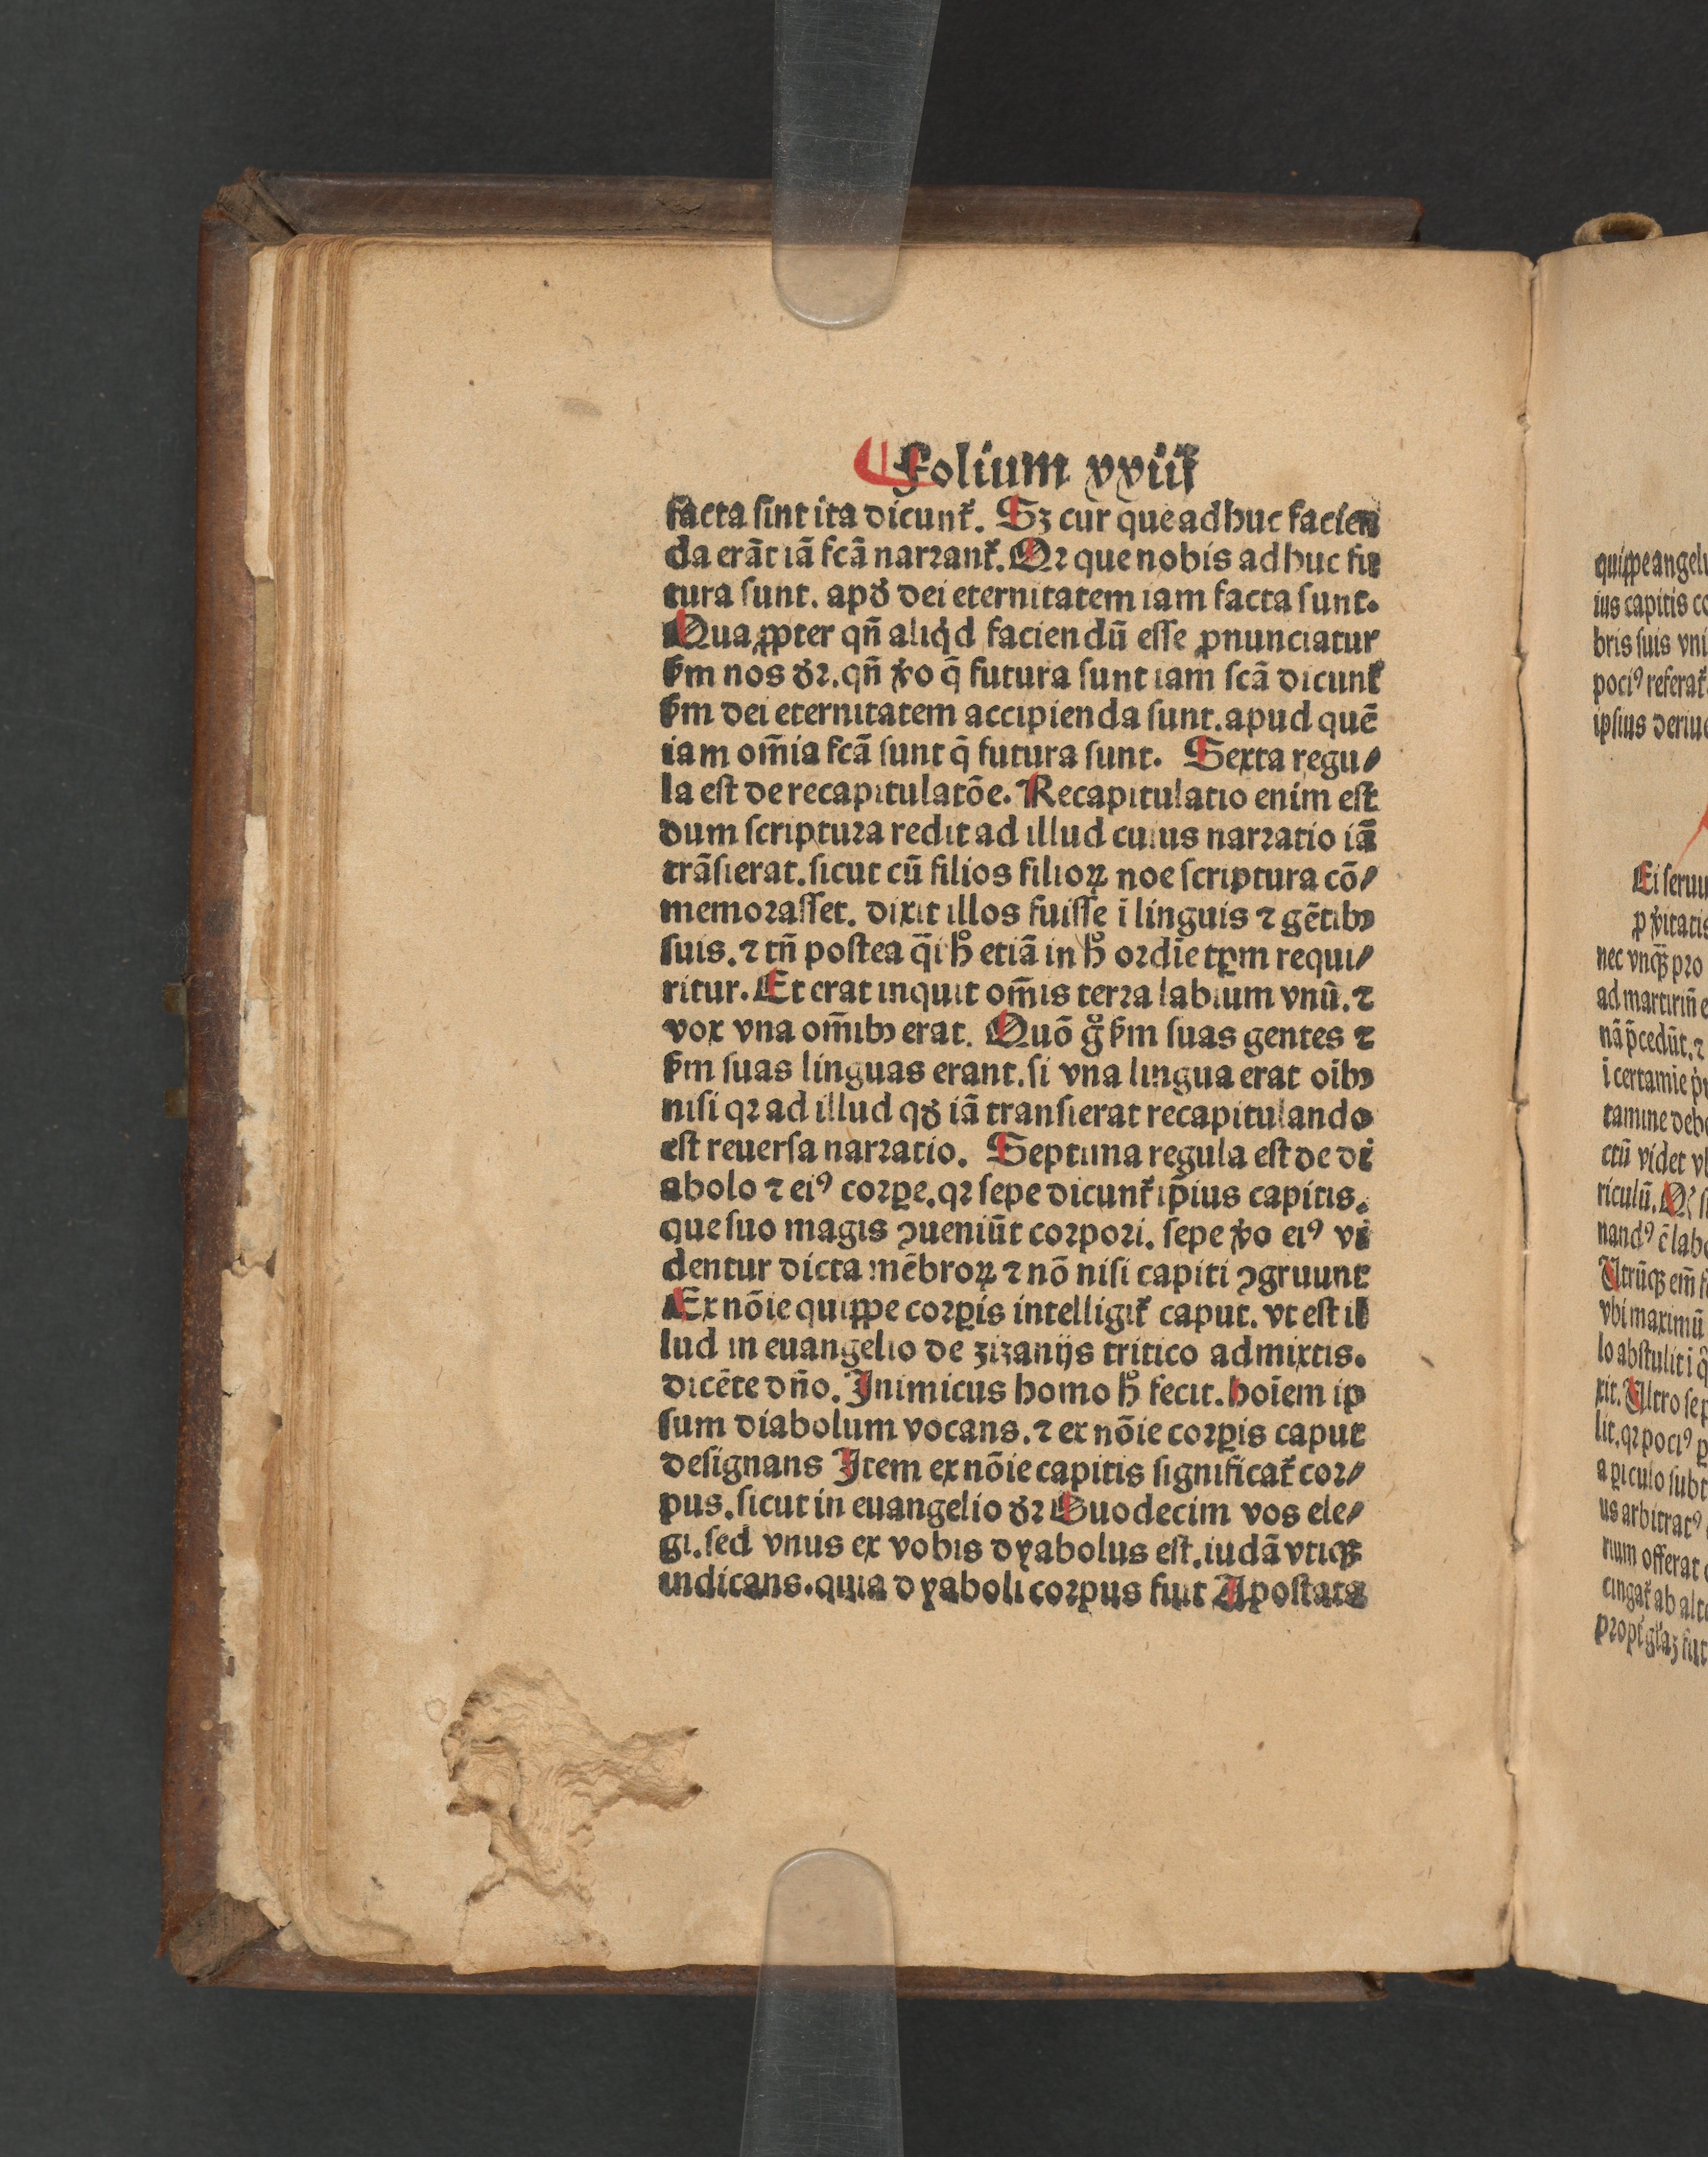 Folium xxiiĳ
facta ſint ita dicunt᷑. Sꝫ cur que adhuc facien
da erãt iã fcã narꝛant᷑. Qꝛ que nobis adhuc fu
tura ſunt. apð dei eternitatem iam facta ſunt.
Quaꝓpter qñ aliqͥd faciendũ eſſe ꝓnunciatur
ẜm nos ðꝛ. qñ ꝟo q̃ futura ſunt iam fcã dicunt᷑
ẜm dei eternitatem accipienda ſunt. apud quẽ
iam om̃ia fcã ſunt q̃ futura ſunt. Sexta regu⸗
la eſt de recapitulatõe. Recapitulatio enim eſt
dum ſcriptura redit ad illud cuius narꝛatio iã
trãſierat. ſicut cũ filios filioꝝ noe ſcriptura cõ⸗
memoꝛaſſet. dixit illos fuiſſe ĩ linguis ⁊ gẽtibꝫ
ſuis. ⁊ tñ poſtea q̃i hͦ etiã in hͦ oꝛdĩe tꝑm requi⸗
ritur. Et erat inquit om̃is terꝛa labium vnũ. ⁊
vox vna om̃ibꝫ erat. Quõ gͦ ẜm ſuas gentes ⁊
ẜm ſuas linguas erant. ſi vna lingua erat oĩbꝫ
niſi qꝛ ad illud qð iã tranſierat recapitulando
eſt reuerſa narꝛatio. Septima regula eſt de di
abolo ⁊ eiꝰ coꝛꝑe. qꝛ ſepe dicunt᷑ ip̃ius capitis.
que ſuo magis ꝯueniũt coꝛpoꝛi. ſepe ꝟo eiꝰ vi
dentur dicta mẽbroꝝ ⁊ nõ niſi capiti ꝯgruunt
Ex nõie quippe coꝛꝑis intelligit᷑ caput. vt eſt il
lud in euangelio de zizanijs tritico admixtis.
dicẽte dño. Inimicus homo hͦ fecit. hoĩem ip
ſum diabolum vocans. ⁊ ex nõie coꝛꝑis caput
deſignans Item ex nõie capitis ſignificat᷑ coꝛ⸗
pus. ſicut in euangelio ðꝛ Duodecim vos ele⸗
gi. ſed vnus ex vobis dyabolus eſt. iudã vtiqꝫ
indicans. quia dyaboli coꝛpus fuit Apoſtata
quippe angelu
ius capitis co
bris ſuis vni
pociꝰ referat᷑
ipſius deriue
Ei ſeruu
ꝑ ꝟitatis
nec vnqꝫ pro
ad martiriũ e
nã p̃cedũt. ⁊
i certamĩe
tamine debe
ctũ videt vl
riculũ.
nandꝰ ẽ labo
Utrũqꝫ em̃
vbi maximũ
lo abſtulit i q̃
rit. Ultro ſe p
lit. qꝛ pociꝰ ꝑ
a ꝑiculo ſubt
us arbitratꝰ
rium offerat
cingat᷑ ab alte